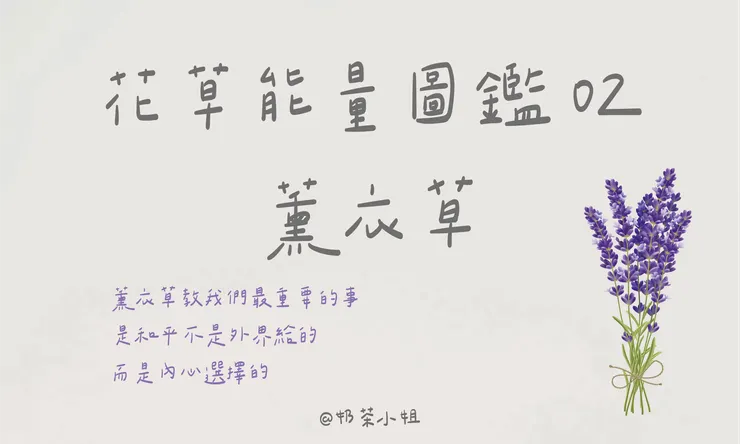 花草能量圖鑑02
薰衣草
薰衣草教我們最重要的事
是和平不是外界給的
而是內心選擇的
@奶茶小姐